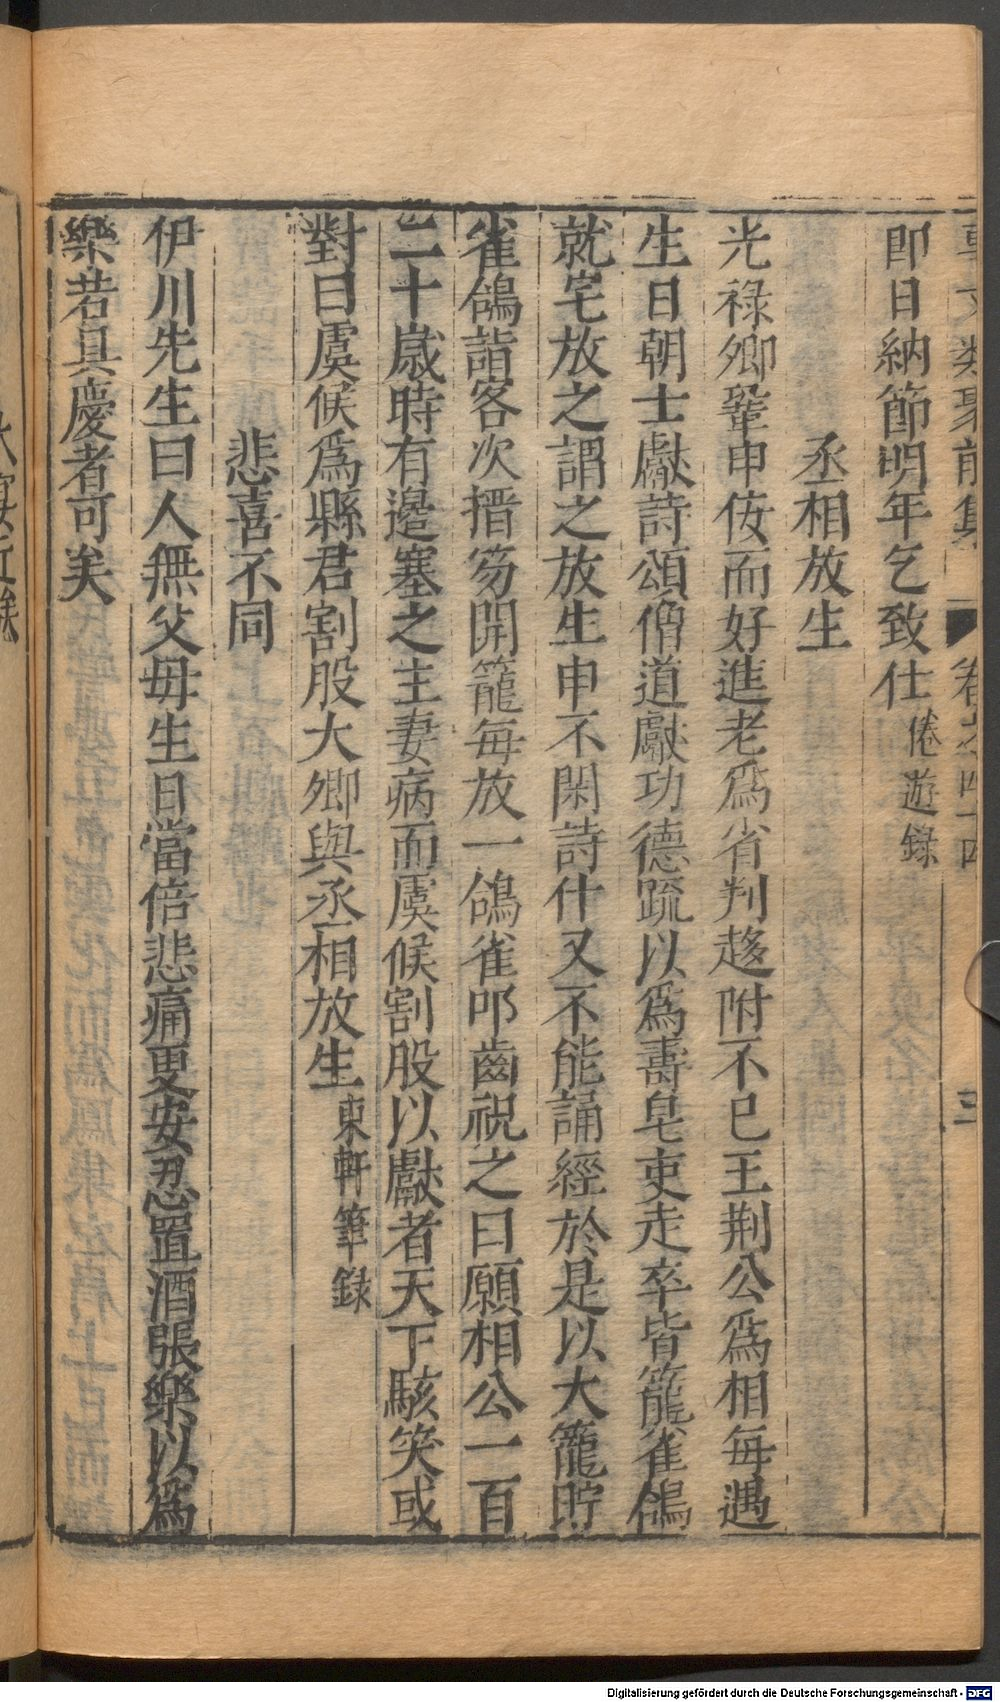 事文類聚前集 卷之四十四 三
即日納節明年乞致仕 倦遊錄
丞相放生
光祿卿鞏申佞而好進老爲省判趍附不已王荆公爲相每遇
生日朝士獻詩頌僧道獻功德䟽以爲壽皂吏走卒皆籠雀鴿
就宅放之謂之放生申不閑詩什又不能誦經於是以大籠貯
雀鴿詣客次搢笏開籠每放一鴿雀叩齒祝之曰願相公一百
二十歲時有邊塞之主妻病而虞候割股以獻者天下駭笑或
對曰虞候爲縣君割股大卿與丞相放生 東軒筆錄
悲喜不同
伊川先生曰人無父毋生日當倍悲痛更安忍置酒張樂以爲
樂若具慶者可矣
Digitalisierung gefördert durch die Deutsche Forschungsgemeinschaft - DFG